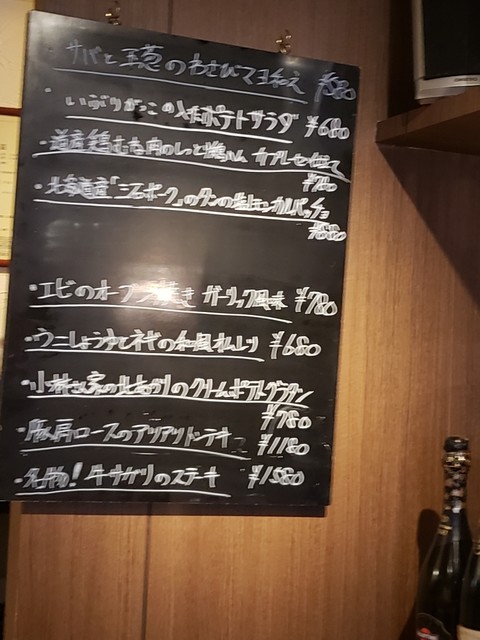 サバと玉葱のわさびマヨ和え ¥580
・いぶりがっこ入りポテトサラダ ¥680
・道産鶏むね肉のしっとり カプレーゼ仕立て
¥780
・北海道産「三元ポーク」のタンの塩レモンカルパッチョ
¥880
・エビのオーブン焼き ガーリック風味 ¥780
・ウニしょうゆとネギの和風オムレツ ¥680
・小林さん家のきたあかりのクリームポテトグラタン
¥780
・豚肩ロースのアツアツトンテキ ¥1180
・名物!牛サガリのステーキ ¥1580